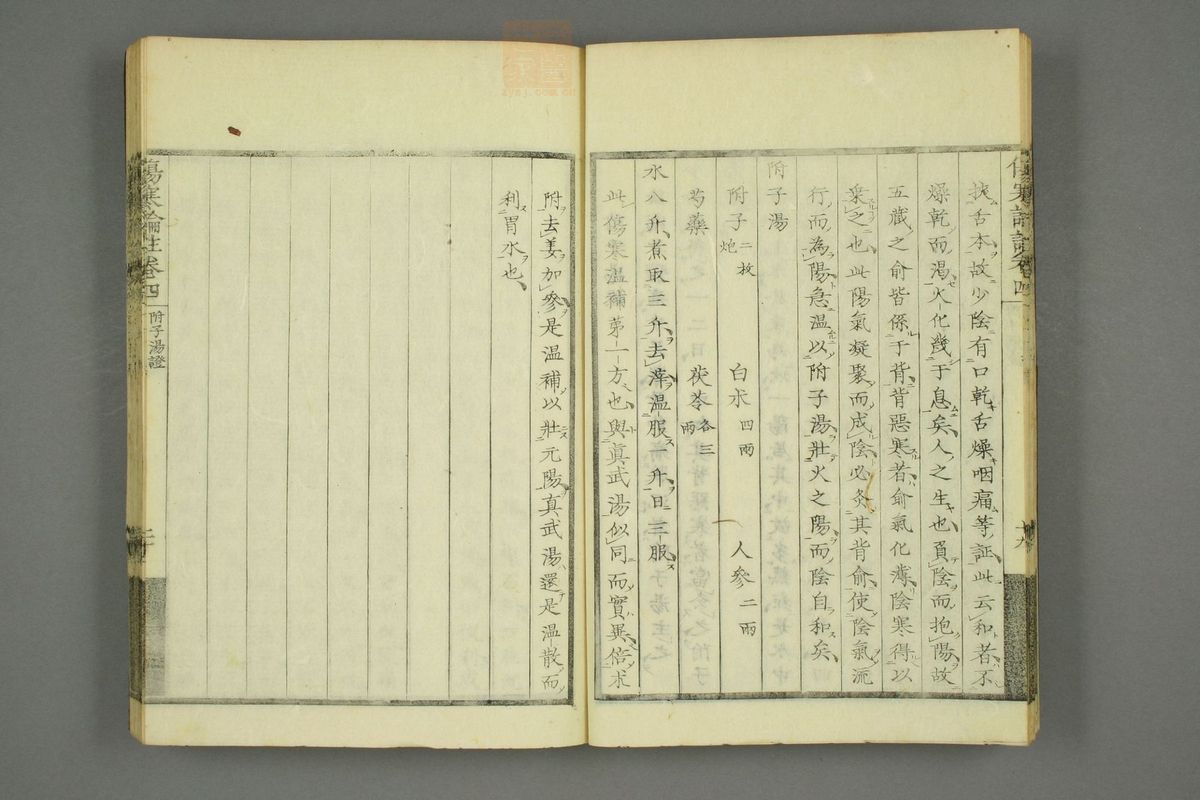 挾舌本故少陰有口乾舌燥咽痛等証此云和者不
燥乾而渴火化幾于息矣人之生也負陰而抱陽故
五藏之俞皆係于背背惡寒者俞氣化薄陰寒得以
乘之也此陽氣凝聚而成陰必灸其背俞使陰氣流
行而為陽急温以附子湯壯火之陽而陰自和矣
附子湯
附子二枚炮 白朮四兩 人參二兩
芍藥 茯苓各三兩
水八升煮取三升去滓温服一升日三服
此傷寒温補第一方也與真武湯似同而實異倍朮
附去姜加參是温補以壯元陽真武湯還是温散而
利胃水也
傷寒論註卷四
附子湯證